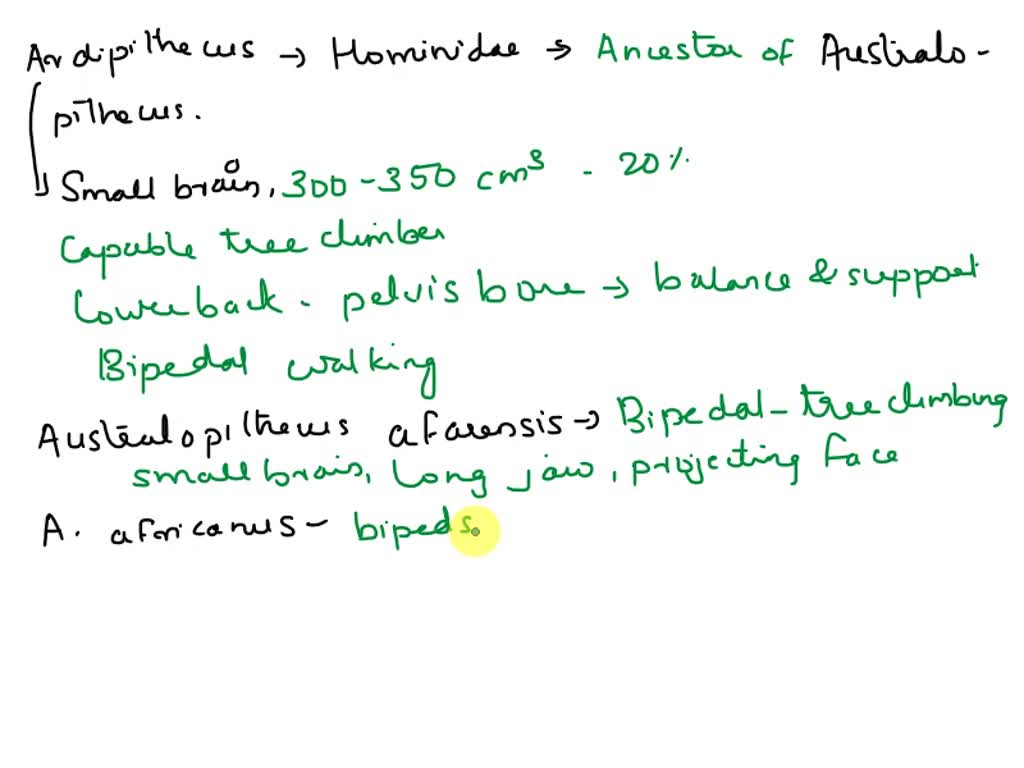 Ardipithecus → Hominidae → Ancestor of Australo-
pithecus.
Small brain, 300-350 cm³ - 20%
Capable tree climber
Lower back - pelvis bone → balance & support
Bipedal walking
Australopithecus afarensis → Bipedal-tree climbing
small brain, long jaw, projecting face
A. africanus - bipeds